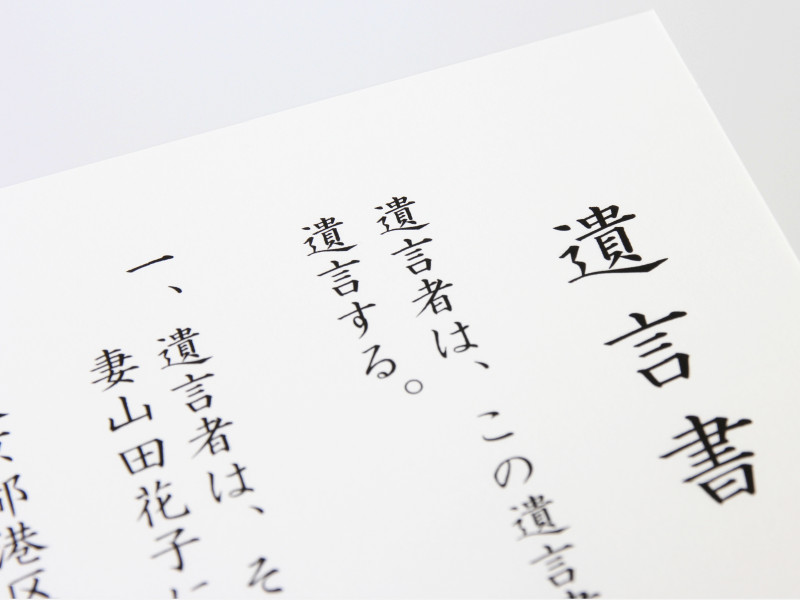 遺言書
遺言者は、この遺言
遺言する。
一、遺言者は、そ
妻山田花子
都港区